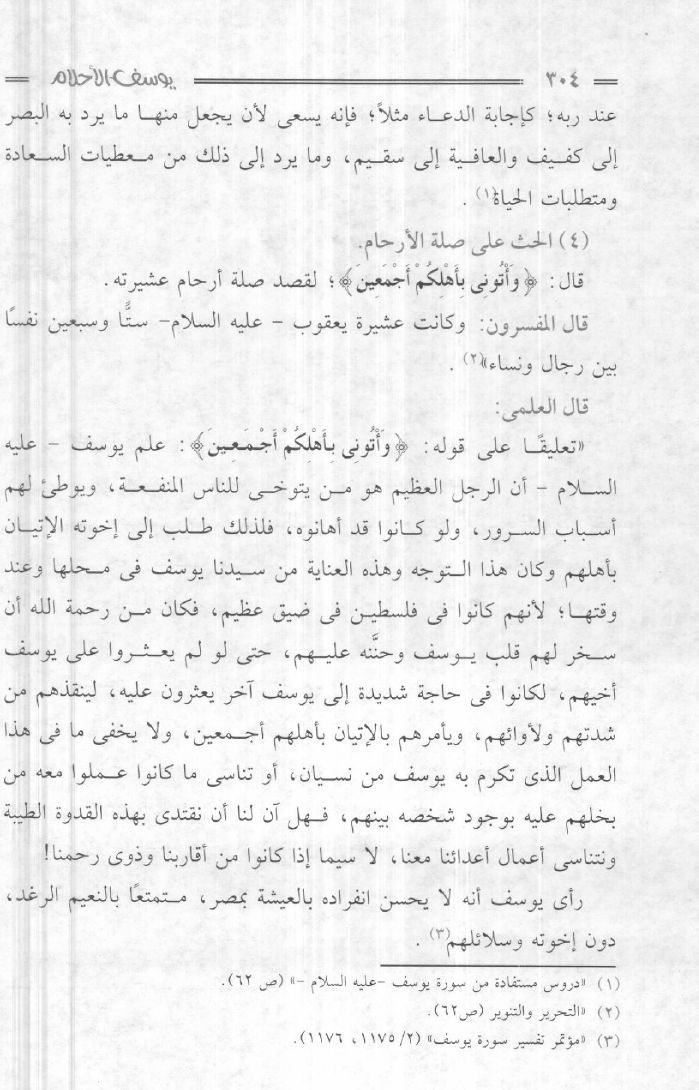 ٣٠٤ يوسف الأحلام
عند ربه؛ كإجابة الدعاء مثلاً؛ فإنه يسعى لأن يجعل منها ما يرد به البصر
إلى كفيف والعافية إلى سقيم، وما يرد إلى ذلك من معطيات السعادة
ومتطلبات الحياة(١).
(٤) الحث على صلة الأرحام.
قال: ﴿وَأْتُونِى بِأَهْلِكُمْ أَجْمَعِينَ﴾؛ لقصد صلة أرحام عشيرته.
قال المفسرون: وكانت عشيرة يعقوب - عليه السلام- ستًّا وسبعين نفسًا
بين رجال ونساء»(٢).
قال العلمى:
«تعليقًا على قوله: ﴿وَأْتُونِى بِأَهْلِكُمْ أَجْمَعِينَ﴾: علم يوسف - عليه
السلام - أن الرجل العظيم هو من يتوخى للناس المنفعة، ويوطئ لهم
أسباب السرور، ولو كانوا قد أهانوه، فلذلك طلب إلى إخوته الإتيان
بأهلهم وكان هذا التوجه وهذه العناية من سيدنا يوسف فى محلها وعند
وقتها؛ لأنهم كانوا فى فلسطين فى ضيق عظيم، فكان من رحمة الله أن
سخر لهم قلب يوسف وحنَّنه عليهم، حتى لو لم يعثروا على يوسف
أخيهم، لكانوا فى حاجة شديدة إلى يوسف آخر يعثرون عليه، لينقذهم من
شدتهم ولأوائهم، ويأمرهم بالإتيان بأهلهم أجمعين، ولا يخفى ما فى هذا
العمل الذى تكرم به يوسف من نسيان، أو تناسى ما كانوا عملوا معه من
بخلهم عليه بوجود شخصه بينهم، فهل آن لنا أن نقتدى بهذه القدوة الطيبة
ونتناسى أعمال أعدائنا معنا، لا سيما إذا كانوا من أقاربنا وذوى رحمنا!
رأى يوسف أنه لا يحسن انفراده بالعيشة بمصر، متمتعًا بالنعيم الرغد،
دون إخوته وسلائلهم(٣).
(١) «دروس مستفادة من سورة يوسف -عليه السلام -» (ص ٦٢).
(٢) «التحرير والتنوير (ص٦٢).
(٣) «مؤتمر تفسير سورة يوسف» (٢/ ١١٧٥، ١١٧٦).